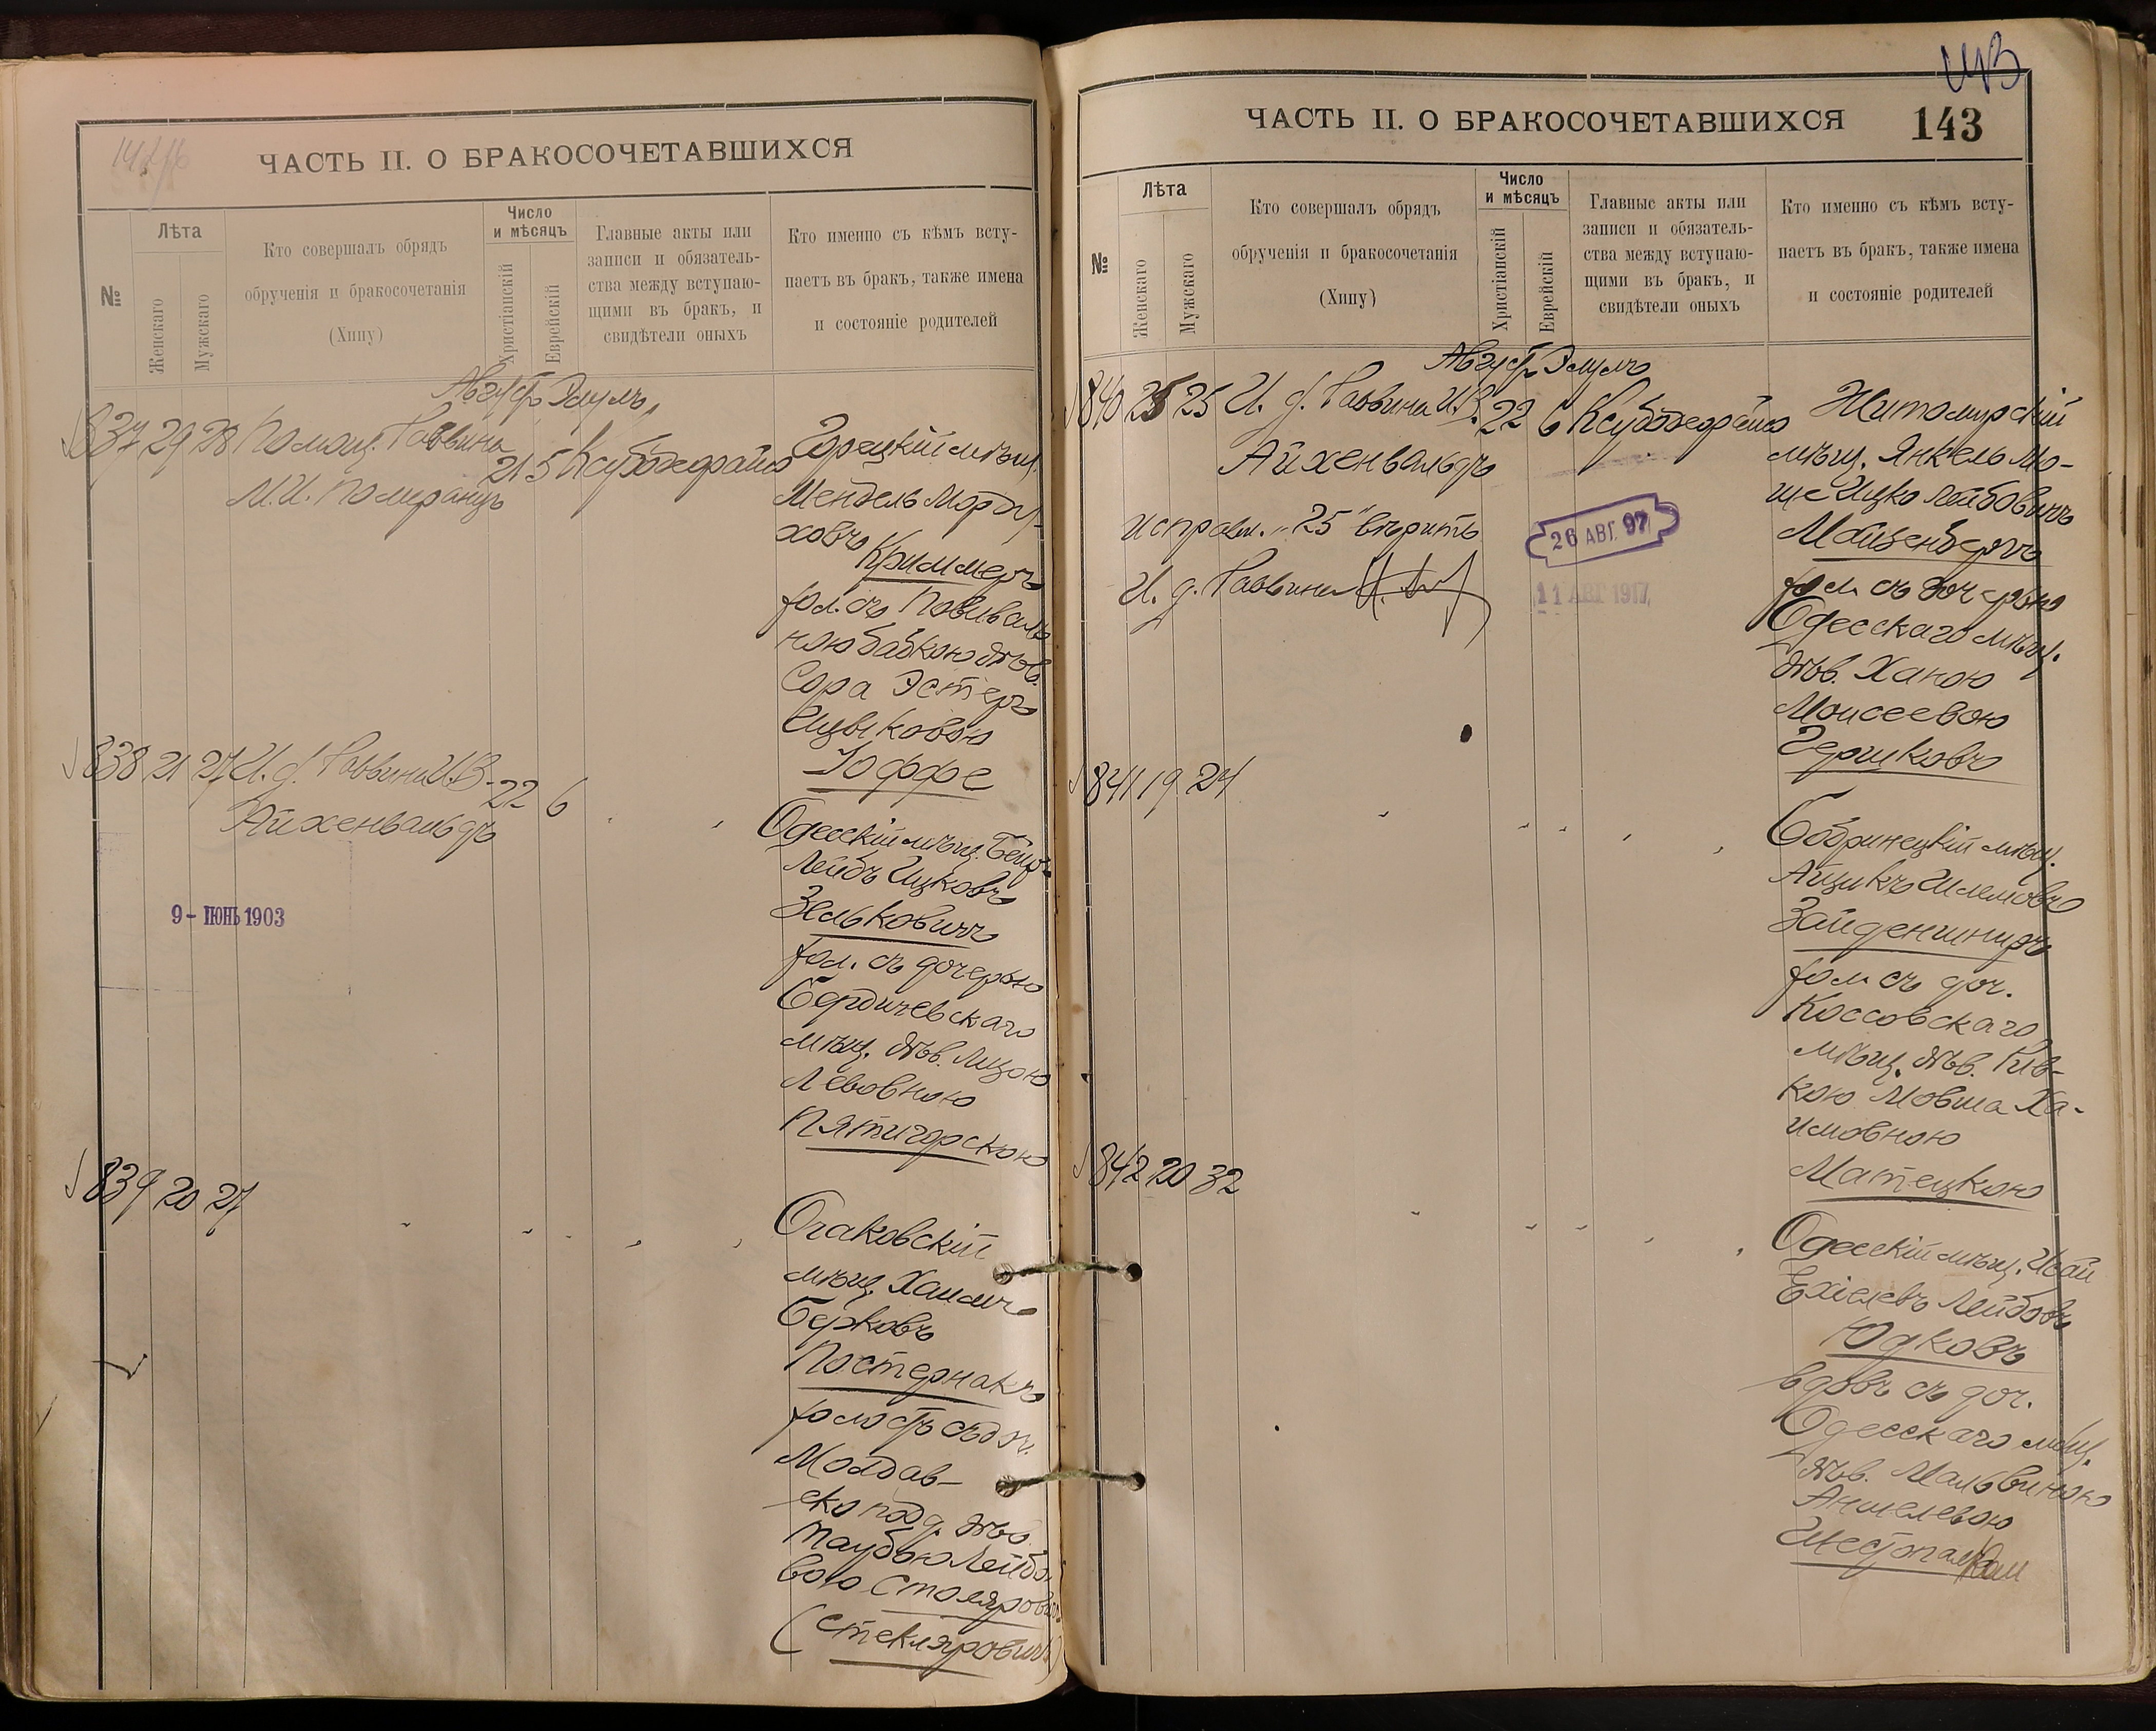 ЧАСТЬ II. О БРАКОСОЧЕТАВШИХСЯ
№
Лѣта
Женскаго
Мужскаго
Кто совершалъ обрядъ
обрученія и бракосочетанія
(Хипу)
Число
и мѣсяцъ
Христіанскій
Еврейскій
Главные акты или
записи и обязатель-
ства между вступаю-
щими въ бракъ, и
свидѣтели оныхъ
Кто именно съ кѣмъ всту-
паетъ въ бракъ, также имена
и состояніе родителей
Август Элулъ
837 29 28 Помощ. Раввина
М.И. Померанцъ
21 5 Ксубогдрайто
Горецкій мѣщ.
Мендель Морду-
ховъ Криммеръ
хол. съ Повиваль
ною бабкою дѣв.
Сора Эстеръ
Ицыковою
Іоффе
838 21 27 И. д. Раввина И.В.
Айхенвальдъ
22 6
Одесскій мѣщ. Беиръ
Лейбъ Ицковъ
Зельковичъ
хол. съ дочерью
Бердичевскаго
мѣщ. дѣв. Лизою
Левовною
Пятигорскою
9 - ІЮНЬ 1903
839 20 27
Очаковскій
мѣщ. Хаимъ
Берковъ
Постернакъ
холостъ съ доч.
Молдав-
ско под д. дѣв.
Таубою Лейбо-
вою Столярович
(Стекляровичъ)
ЧАСТЬ II. О БРАКОСОЧЕТАВШИХСЯ
143
№
Лѣта
Женскаго
Мужскаго
Кто совершалъ обрядъ
обрученія и бракосочетанія
(Хипу)
Число
и мѣсяцъ
Христіанскій
Еврейскій
Главные акты или
записи и обязатель-
ства между вступаю-
щими въ бракъ, и
свидѣтели оныхъ
Кто именно съ кѣмъ всту-
паетъ въ бракъ, также имена
и состояніе родителей
Август Элулъ
840 25 25 И. д. Раввина И.В.
Айхенвальдъ
22 6 Ксубогдрайто
исправл. "25" вѣрить
И. д. Раввина
26 АВГ. 97
11 АВГ 1917
Житомирскій
мѣщ. Янкель Мо-
ше Ицко Лейбовичъ
Майзенбергъ
хол. съ дочерью
Одесскаго мѣщ.
дѣв. Ханою
Моисеевою
Гершковъ
841 19 24
Бобринецкій мѣщ.
Айзикъ Шлемовъ
Зайденшниръ
хол съ доч.
Коссовскаго
мѣщ. дѣв. Рив-
кою Мовша Ха-
имовною
Матецкою
842 20 32
Одесскій мѣщ. Исай
Ехіелевъ Лейбовъ
Юдковъ
вдовъ съ доч.
Одесскаго мѣщ.
дѣв. Мальвиною
Аншелевою